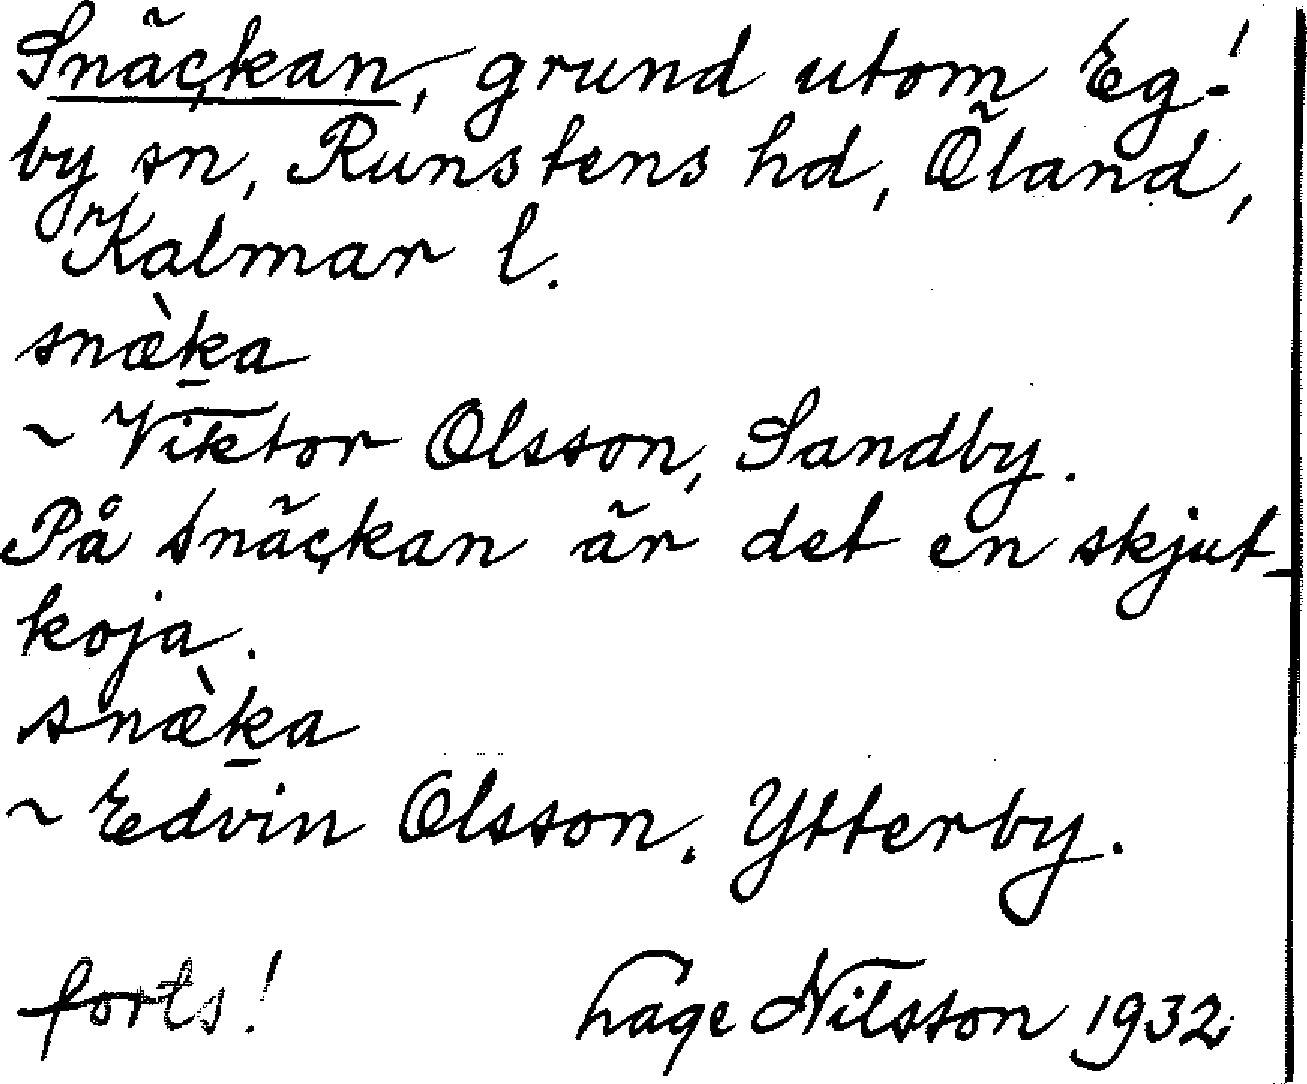 Snäckan, grund utom Eg-!
by sn, Runstens hd, Öland,
Kalmar l.
snæ̀k̠a
~ Viktor Olsson, Sandby.
På Snäckan är det en skjut-
koja.
snæ̀k̠a
~ Edvin Olsson, Ytterby.
forts! Lage Nilsson 1932